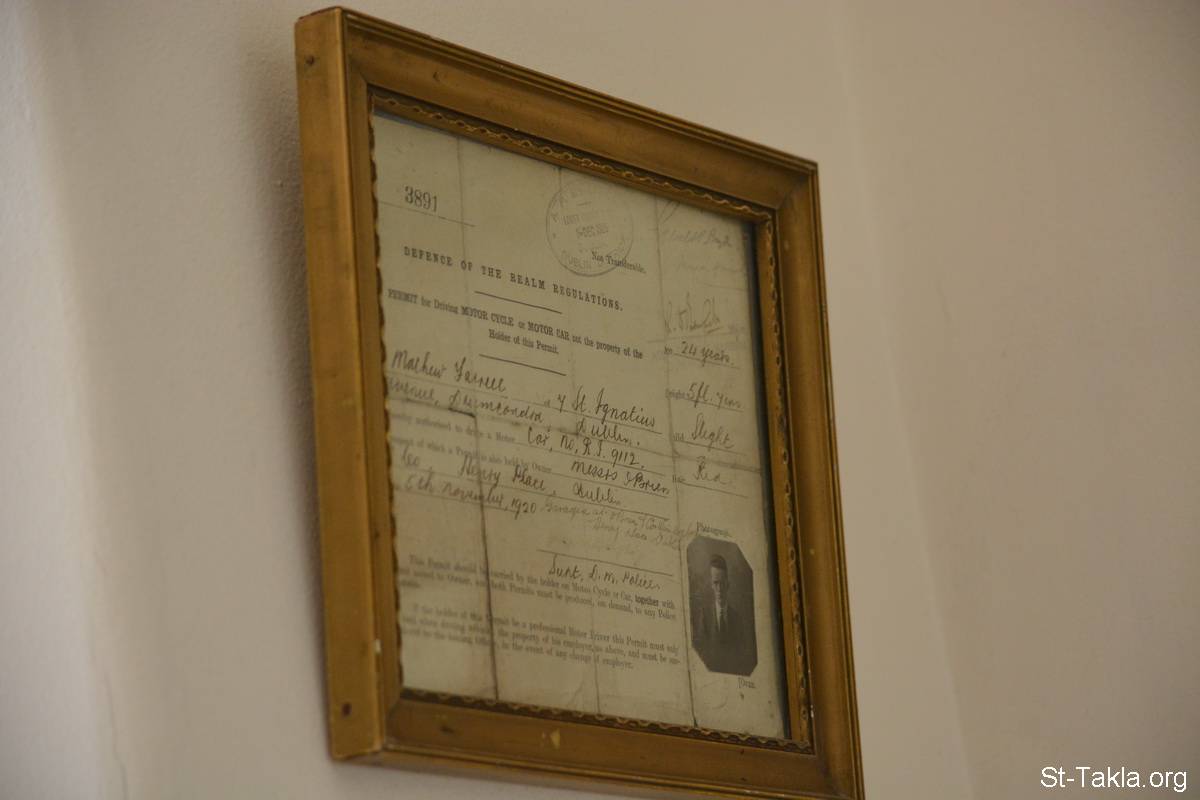 3891
5-DEC 1920
DUBLIN
Not Transferable.
DEFENCE OF THE REALM REGULATIONS.
PERMIT for Driving MOTOR CYCLE or MOTOR CAR not the property of the
Holder of this Permit.
Mathew Farrell of 7 St. Ignatius
Avenue, Drumcondra, Dublin.
hereby authorised to drive a Motor Car, No, R.I. 9112.
respect of which a Permit is also held by Owner Messrs O'Brien
Co, Henry Place, Dublin
5th November, 1920
Supt, D.M. Police
This Permit should be carried by the holder on Motor Cycle or Car, together with
issued to Owner, and both Permits must be produced, on demand, to any Police
If the holder of this Permit be a professional Motor Driver this Permit must only
used when driving the property of his employer, as above, and must be
to the issuing Officer, in the event of any change of employer.
24 years.
Height 5ft. 7ins
Build Slight
Hair Red
Photograph.
[Over.
St-Takla.org